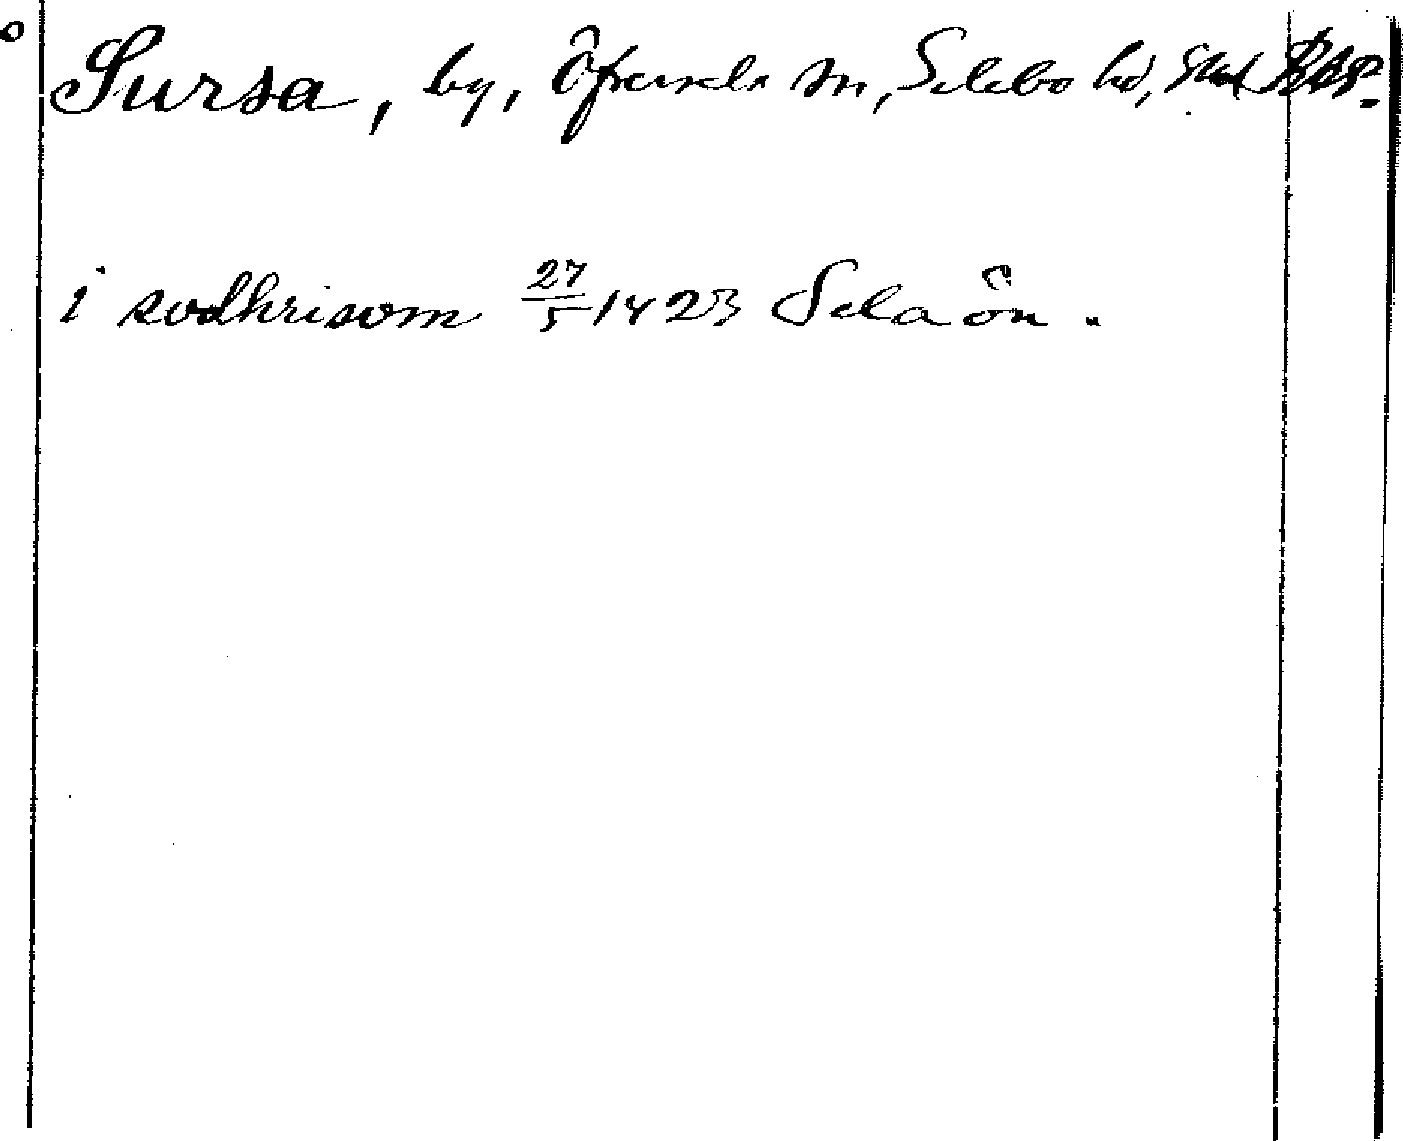 Sursa, by, Öfversela sn, Selebo hd, Södl
i sodhrisom 27/5 1423 Selaön.